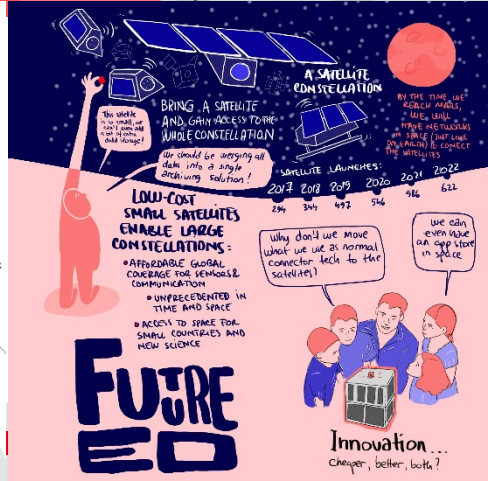 A SATELLITE
CONSTELLATION
BRING A SATELLITE
AND GAIN ACCESS TO THE
WHOLE CONSTELLATION
BY THE TIME WE
REACH MARS,
WE WILL
HAVE NETWORKS
IN SPACE (JUST LIKE
ON EARTH) TO CONECT
THE SATELLITES
This satellite
is so small, we
can't even add
a bit of extra
data storage!
We should be merging all
data into a single
archiving solution!
SATELLITE LAUNCHES:
2017 2018 2019 2020 2021 2022
294 344 497 546 586 622
LOW-COST
SMALL SATELLITES
ENABLE LARGE
CONSTELLATIONS:
• AFFORDABLE GLOBAL
COVERAGE FOR SENSORS &
COMMUNICATION
• UNPRECEDENTED IN
TIME AND SPACE
• ACCESS TO SPACE FOR
SMALL COUNTRIES AND
NEW SCIENCE
Why don't we move
what we use as normal
connector tech to the
satellites?
we can
even have
an app store
in space
FUTURE
ED
Innovation...
cheaper, better, both?